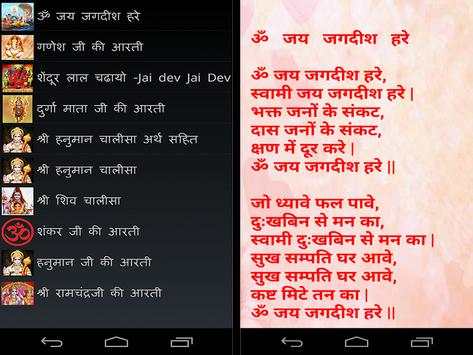 ॐ जय जगदीश हरे
गणेश जी की आरती
शेंदूर लाल चढायो -Jai dev Jai Dev
दुर्गा माता जी की आरती
श्री हनुमान चालीसा अर्थ सहित
श्री हनुमान चालीसा
श्री शिव चालीसा
शंकर जी की आरती
हनुमान जी की आरती
श्री रामचंद्रजी की आरती
ॐ जय जगदीश हरे
ॐ जय जगदीश हरे,
स्वामी जय जगदीश हरे |
भक्त जनों के संकट,
दास जनों के संकट,
क्षण में दूर करे |
ॐ जय जगदीश हरे ||
जो ध्यावे फल पावे,
दुःखबिन से मन का,
स्वामी दुःखबिन से मन का |
सुख सम्पति घर आवे,
सुख सम्पति घर आवे,
कष्ट मिटे तन का |
ॐ जय जगदीश हरे ||